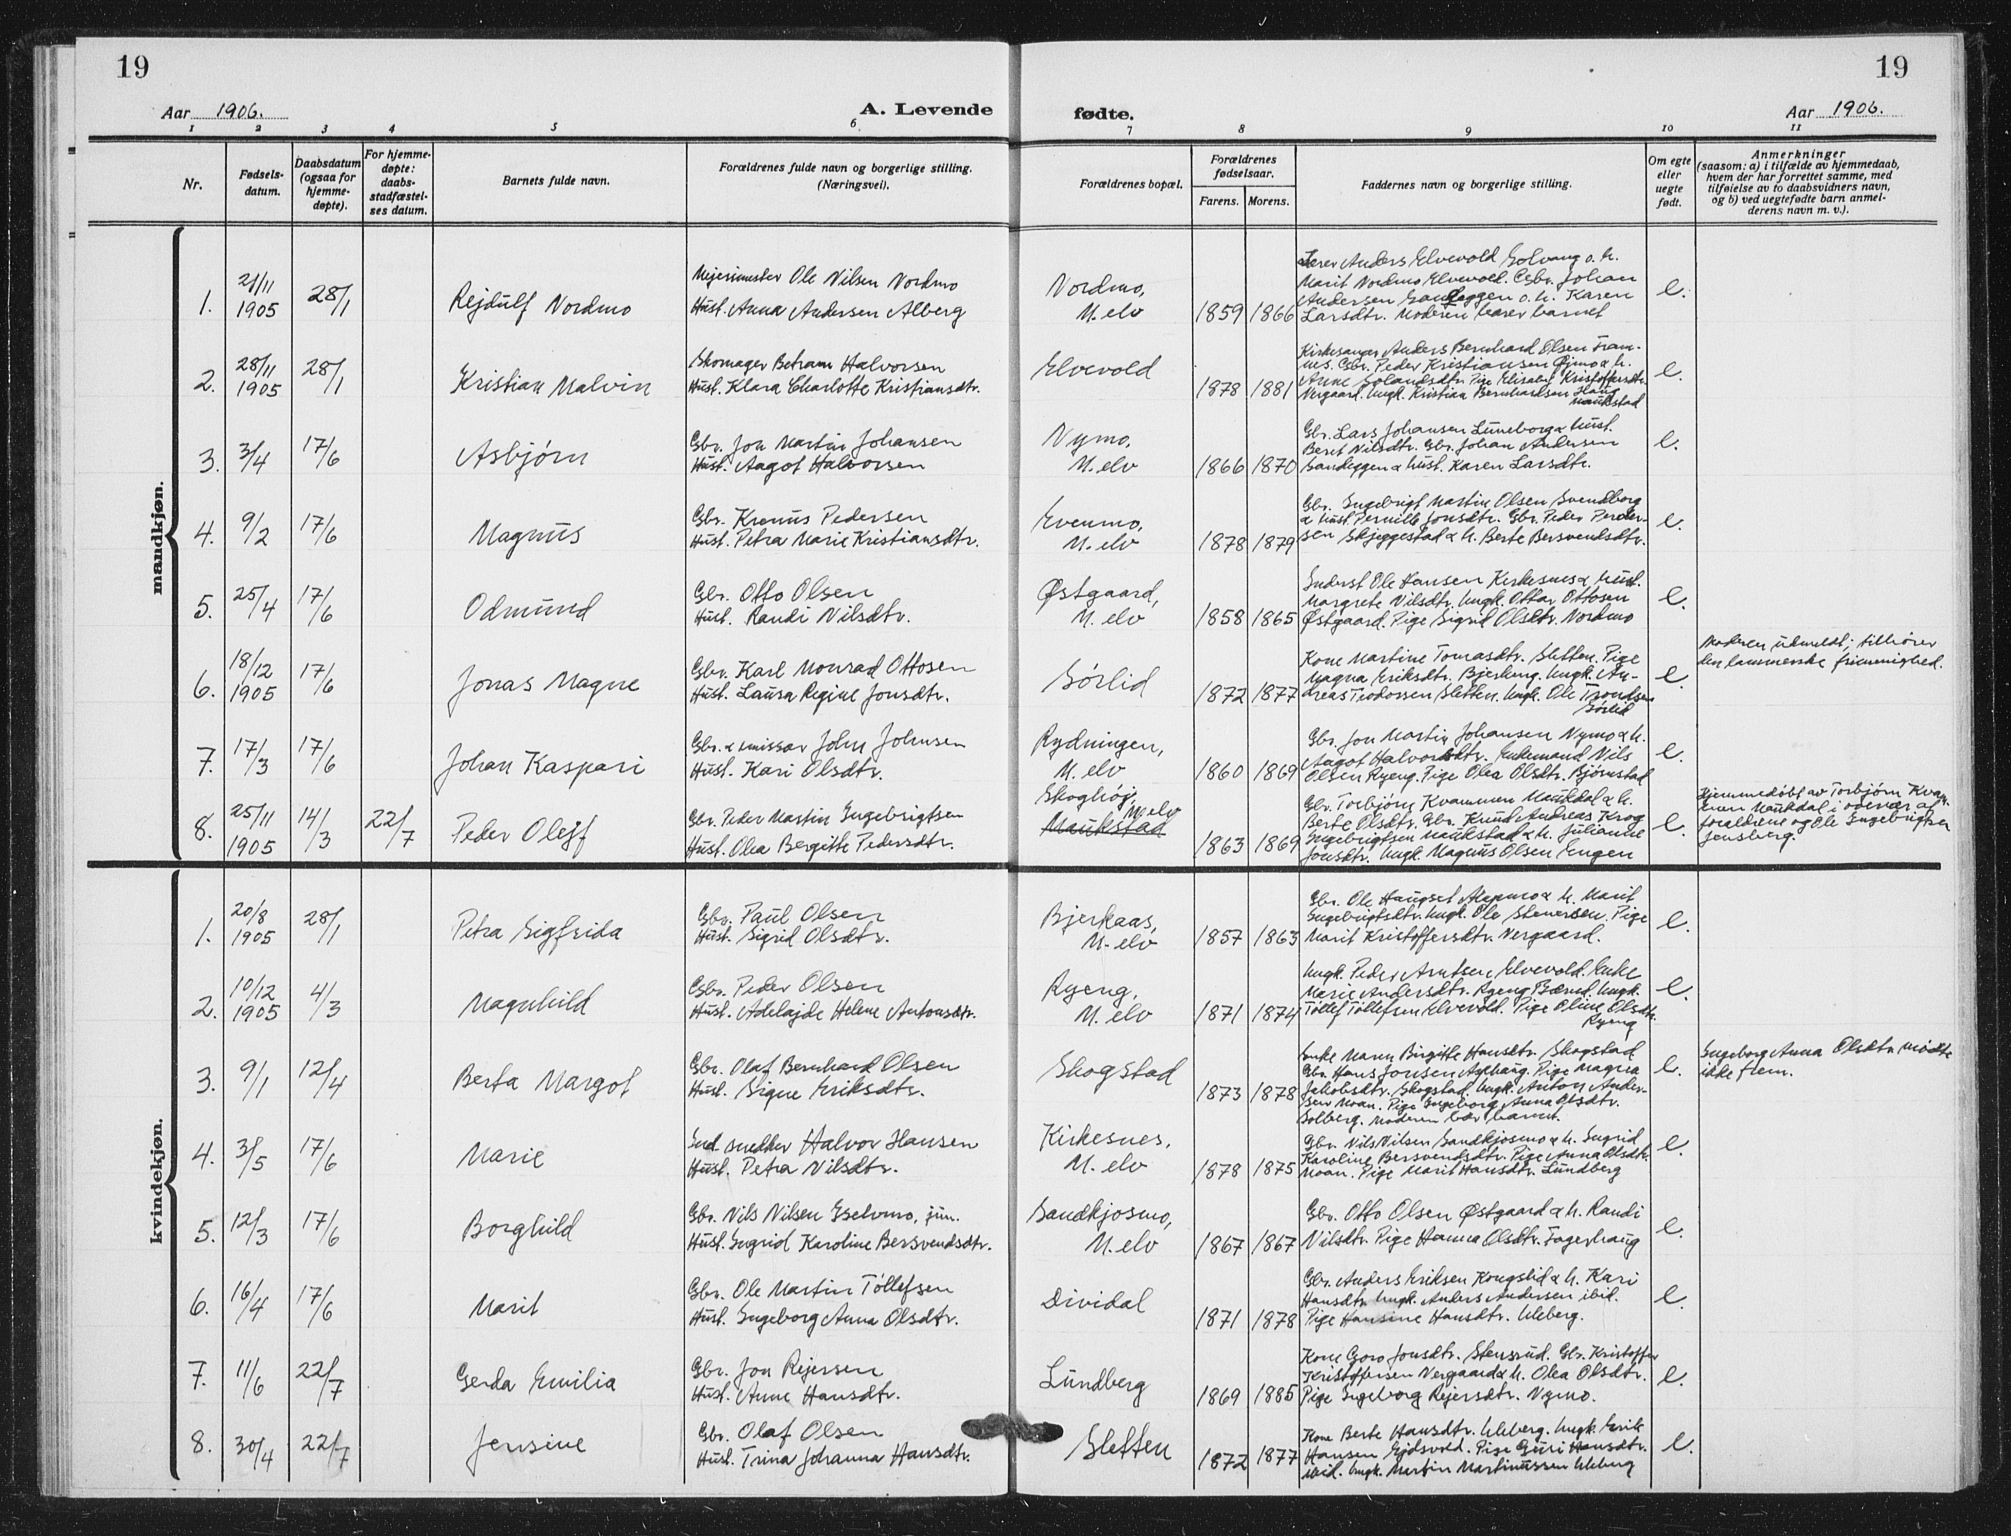 19
19
Aar 1906.
A. Levende
fødte.
Aar 1906.
1 2 3 4 5 6 7 8 9 10 11
Nr.
Fødsels-
datum.
Daabsdatum
(ogsaa for
hjemme-
døpte).
For hjemme-
døpte:
daabs-
stadfæstel-
ses datum.
Barnets fulde navn.
Forældrenes fulde navn og borgerlige stilling.
(Næringsvei).
Forældrenes bopæl.
Forældrenes
fødselsaar.
Farens. Morens.
Faddernes navn og borgerlige stilling.
Om egte
eller
uegte
født.
Anmerkninger
(saasom: a) i tilfælde av hjemmedaab,
hvem der har forrettet samme, med
tilføielse av to daabsvidners navn,
og b) ved uegtefødte barn anmel-
derens navn m. v.).
mandkjøn.
1. 21/11 1905 28/1 Rejdulf Nordmo
Mejerimester Ole Nilsen Nordmo
Hust. Anna Andersen Alberg
Nordmo,
M. elv
1859 1866
Lærer Anders Elvevold Solvang o. h.
Marit Nordmo Elvevold. Gbr. Johan
Andersen Sandeggen o. h. Karen
Larsdtr. Moderen bærer barnet
e.
2. 28/11 1905 28/1 Kristian Malvin
Skomager Betram Halvorsen
Hust. Klara Charlotte Kristiansdtr.
Elvevold
1878 1881
Kirkesanger Anders Bernhard Olsen Fram-
nes. Gbr. Peder Kristiansen Øjmo & h.
Anne Solandsdtr. Pige Elisabet Kristoffersdtr.
Vergaard. Ungk. Kristian Bernhardsen Haug
Maukstad
e.
3. 3/4 17/6 Asbjørn
Gbr. Jon Martin Johansen
Hust. Aagot Halvorsen
Nymo,
M. elv
1866 1870
Gbr. Lars Johansen Luneborg & hust.
Beret Nilsdtr. Gbr. Johan Andersen
Sandeggen & hust. Karen Larsdtr.
e.
4. 9/2 17/6 Magnus
Gbr. Kronus Pedersen
Hust. Petra Marie Kristiansdtr.
Evenmo,
M. elv
1878 1879
Gbr. Ingebrigt Martin Olsen Svendborg
& hust. Pernille Jonsdtr. Gbr. Peder Peder-
sen Skjeggestad & h. Berte Bersvendsdtr.
e.
5. 25/4 17/6 Odmund
Gbr. Otto Olsen
Hust. Randi Nilsdtr.
Østgaard,
M. elv
1858 1865
Inderst Ole Hansen Kirkesnes & hust.
Margrete Nilsdtr. Ungk. Ottar Ottosen
Østgaard. Pige Sigrid Olsdtr. Nordmo
e.
6. 18/12 1905 17/6 Jonas Magne
Gbr. Karl Monrad Ottosen
Hust. Laura Regine Jonsdtr.
Sørlid
1872 1877
Kone Martine Tomasdtr. Sletten. Pige
Magna Eriksdtr. Bjerkeng. Ungk. An-
dreas Teodorsen Sletten. Ungk. Ole Trondsen
Sørlid
e.
Moderen udmeldt; tilhører
den lammerske frimenighed.
7. 17/3 17/6 Johan Kaspari
Gbr. & emissær John Johnsen
Hust. Kari Olsdtr.
Rydningen,
M. elv
1860 1869
Gbr. Jon Martin Johansen Nymo & h.
Aagot Halvorsdtr. Enkemand Nils
Olsen Ryeng. Pige Olea Olsdtr. Bjørnstad
e.
8. 25/11 1905 14/3 22/7 Peder Olejf
Gbr. Peder Martin Ingebrigtsen
Hust. Olea Bergitte Pedersdtr.
Skoghøj,
M. elv
Maukstad
1863 1869
Gbr. Torbjørn Kvammen Maukdal & h.
Berte Olsdtr. Gbr. Knud Andreas Krog
Ingebrigtsen Maukstad & h. Julianne
Jonsdtr. Ungk. Magnus Olsen Engen
e.
Hjemmedøbt av Torbjørn Kvam-
men Maukdal i overvær af
forældrene og Ole Ingebrigtsen
Jensberg.
kvindekjøn.
1. 20/8 1905 28/1 Petra Sigfrida
Gbr. Paul Olsen
Hust. Sigrid Olsdtr.
Bjerkaas,
M. elv
1857 1863
Gbr. Ole Haugset Alapmo & h. Marit
Ingebrigtsdtr. Ungk. Ole Stenersen. Pige
Marit Kristoffersdtr. Vergaard.
e.
2. 10/12 1905 4/3 Magnhild
Gbr. Peder Olsen
Hust. Adelajde Helene Antonsdtr.
Ryeng,
M. elv
1871 1874
Ungk. Peder Arntsen Elvevold. Enke
Marie Andersdtr. Ryeng Ungk.
Tøllef Tøllefsen Elvevold. Pige Oline Olsdtr.
Ryeng
e.
3. 9/1 12/4 Berta Margot
Gbr. Olaf Bernhard Olsen
Hust. Signe Eriksdtr.
Skogstad
1873 1878
Enke Maren Birgitte Hansdtr. Skogstad
Gbr. Hans Jonsen Asphaug. Pige Magna
Jakobsdtr. Skogstad. Ungk. Anton Ander-
sen Moan. Pige Ingeborg Anna Olsdtr.
Solberg. Moderen bær barnet.
e.
Ingeborg Anna Olsdtr. mødte
ikke frem.
4. 3/5 17/6 Marie
Ind. snedker Halvor Hansen
Hust. Petra Nilsdtr.
Kirkesnes,
M. elv
1878 1875
Gbr. Nils Nilsen Sandkjosmo & h. Ingrid
Karoline Bersvendsdtr. Pige Anna Olsdtr.
Moan. Pige Marit Hansdtr. Lundberg
e.
5. 12/3 17/6 Borghild
Gbr. Nils Nilsen Iselvmo, jun.
Hust. Ingrid Karoline Bersvendsdtr.
Sandkjosmo,
M. elv
1867 1867
Gbr. Otto Olsen Østgaard & h. Randi
Nilsdtr. Pige Hanna Olsdtr. Fagerhaug
e.
6. 16/4 17/6 Marit
Gbr. Ole Martin Tøllefsen
Hust. Ingeborg Anna Olsdtr.
Dividal
1871 1878
Gbr. Anders Eriksen Kongslid & h. Kari
Hansdtr. Ungk. Anders Andersen ibid.
Pige Hansine Hansdtr. Uleberg.
e.
7. 11/6 22/7 Gerda Emilia
Gbr. Jon Rejersen
Hust. Anne Hansdtr.
Lundberg
1869 1885
Kone Goro Jonsdtr. Stensrud. Gbr. Kristoffer
Kristoffersen Vergaard & h. Olea Olsdtr.
Pige Ingeborg Rejersdtr. Nymo.
e.
8. 30/4 22/7 Jensine
Gbr. Olaf Olsen
Hust. Trina Johanna Hansdtr.
Sletten
1872 1877
Kone Berte Hansdtr. Uleberg. Ungk. Erik
Hansen Ejdsvold. Pige Guri Hansdtr.
ibid. Ungk. Martin Martinussen Uleberg
e.